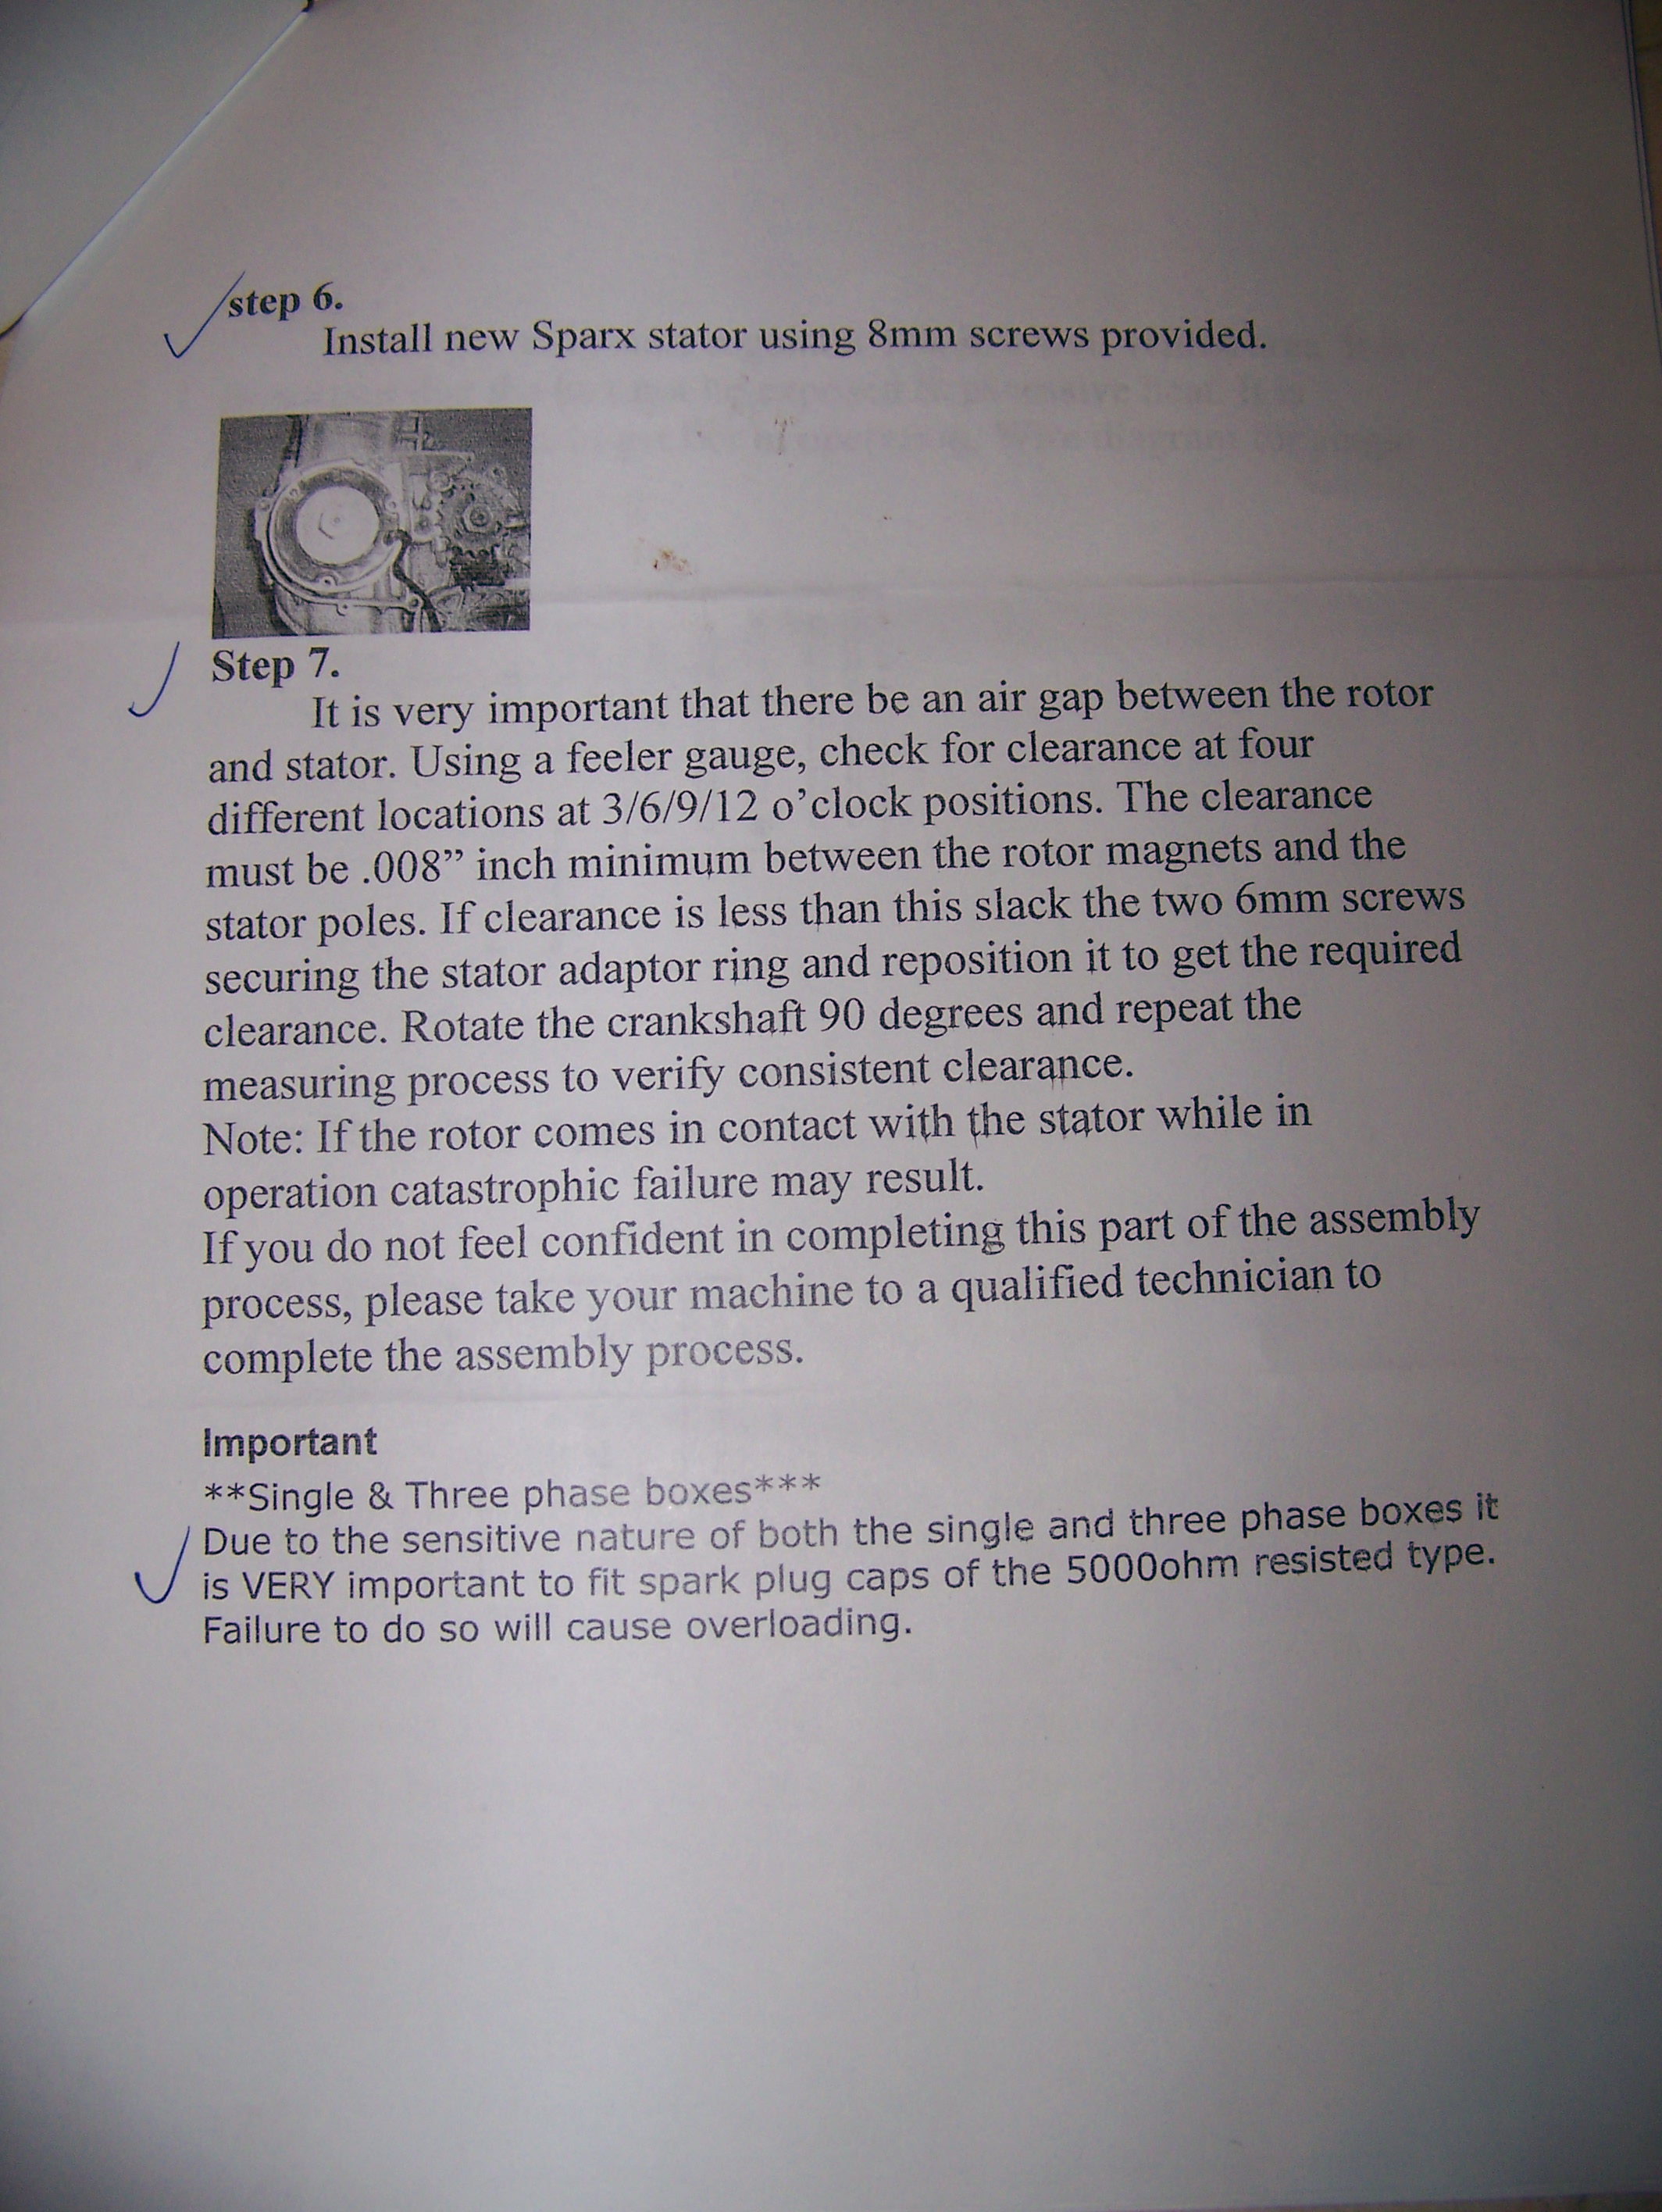 step 6.
Install new Sparx stator using 8mm screws provided.
Step 7.
It is very important that there be an air gap between the rotor
and stator. Using a feeler gauge, check for clearance at four
different locations at 3/6/9/12 o’clock positions. The clearance
must be .008” inch minimum between the rotor magnets and the
stator poles. If clearance is less than this slack the two 6mm screws
securing the stator adaptor ring and reposition it to get the required
clearance. Rotate the crankshaft 90 degrees and repeat the
measuring process to verify consistent clearance.
Note: If the rotor comes in contact with the stator while in
operation catastrophic failure may result.
If you do not feel confident in completing this part of the assembly
process, please take your machine to a qualified technician to
complete the assembly process.
Important
**Single & Three phase boxes***
Due to the sensitive nature of both the single and three phase boxes it
is VERY important to fit spark plug caps of the 5000ohm resisted type.
Failure to do so will cause overloading.